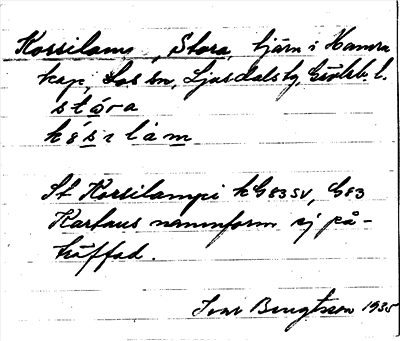 Korsilamp, Stora, tjärn i Hamra
kap, Los sn, Ljusdals tg, Gävleb. l.
stóra
kósilàm
St Korsilampi kG83SV, G83
Kartans namnform ej på-
träffad.
Ivar Bengtsson 1935